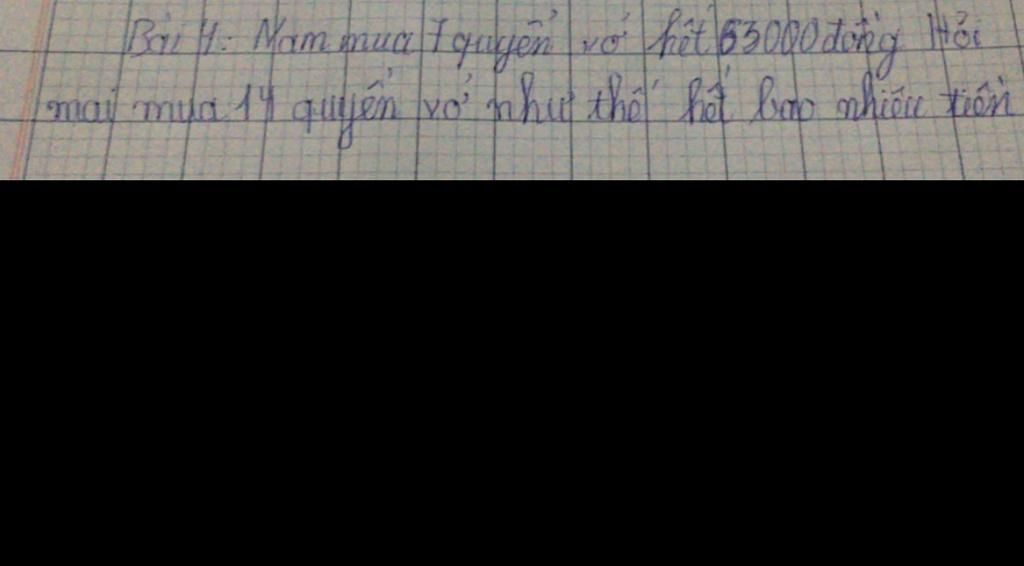 Bài 4: Nam mua 7 quyển vở hết 63000 đồng Hỏi
mai mua 14 quyển vở như thế hết bao nhiêu tiền